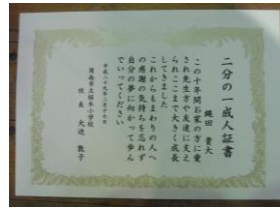 二分の一成人証書
縄田 貴大
この十年間お家の方に愛
され先生方や友達に支え
られここまで大きく成長
してきました
これからもまわりの人へ
の感謝の気持ちを忘れず
自分の夢に向かって歩ん
でいってください
平成二十九年二月十七日
周南市立桜木小学校
校長 大迫 敦子